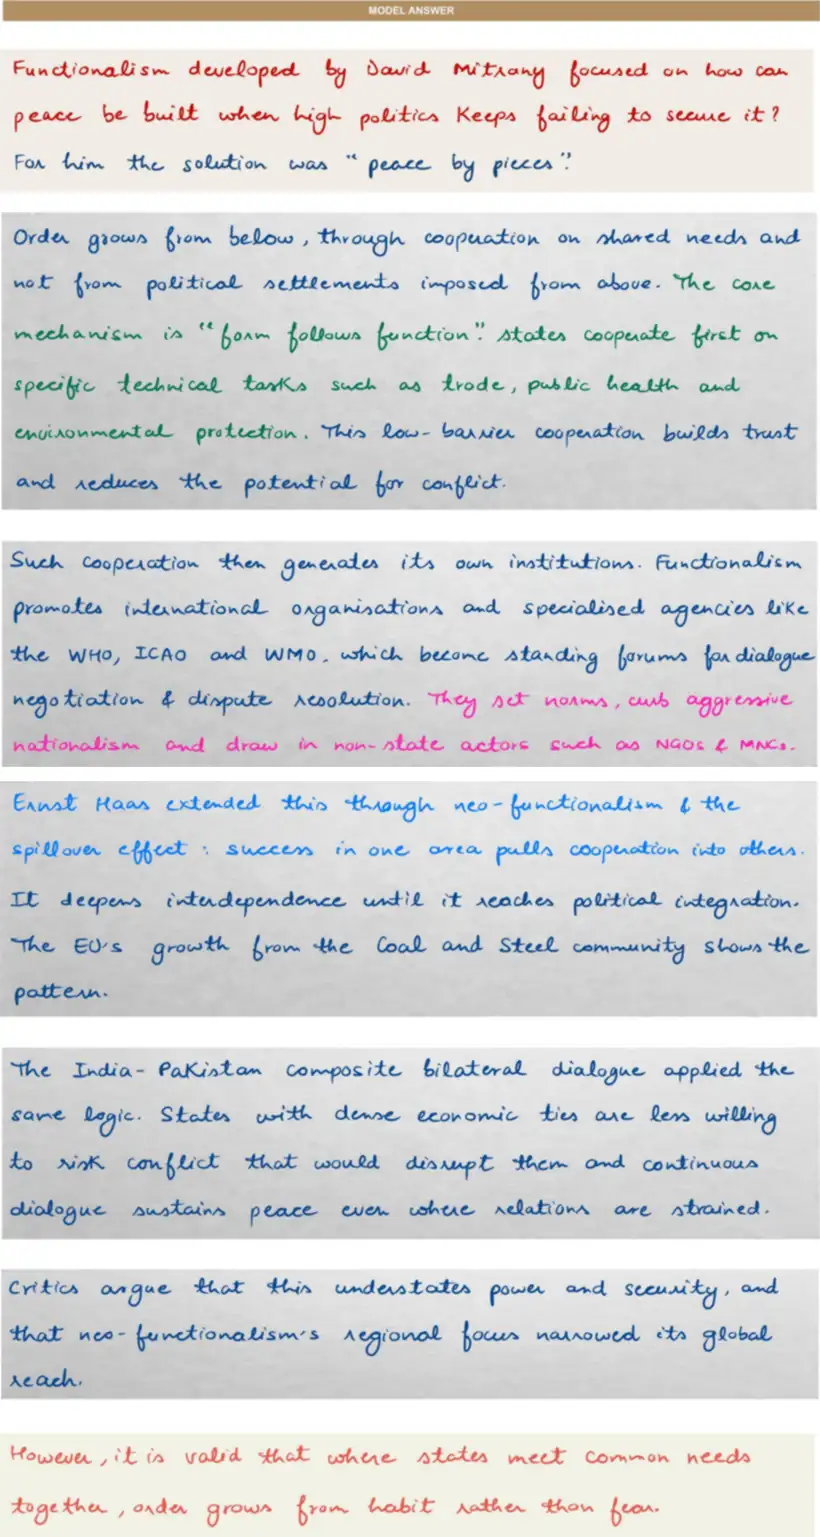 MODEL ANSWER
Functionalism developed by David Mitrany focused on how can
peace be built when high politics Keeps failing to secure it?
For him the solution was "peace by pieces".
Order grows from below, through cooperation on shared needs and
not from political settlements imposed from above. The core
mechanism is "form follows function". States cooperate first on
specific technical tasks such as trade, public health and
environmental protection. This low-barrier cooperation builds trust
and reduces the potential for conflict.
Such cooperation then generates its own institutions. Functionalism
promotes international organisations and specialised agencies like
the WHO, ICAO and WMO, which become standing forums for dialogue
negotiation & dispute resolution. They set norms, curb aggressive
nationalism and draw in non-state actors such as NGOs & MNCs.
Ernst Haas extended this through neo-functionalism & the
spillover effect : success in one area pulls cooperation into others.
It deepens interdependence until it reaches political integration.
The EU's growth from the Coal and Steel community shows the
pattern.
The India-Pakistan composite bilateral dialogue applied the
same logic. States with dense economic ties are less willing
to risk conflict that would disrupt them and continuous
dialogue sustains peace even where relations are strained.
Critics argue that this understates power and security, and
that neo-functionalism's regional focus narrowed its global
reach.
However, it is valid that where states meet common needs
together, order grows from habit rather than fear.